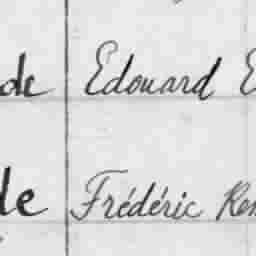 de Edouard E
de Frédéric Ren